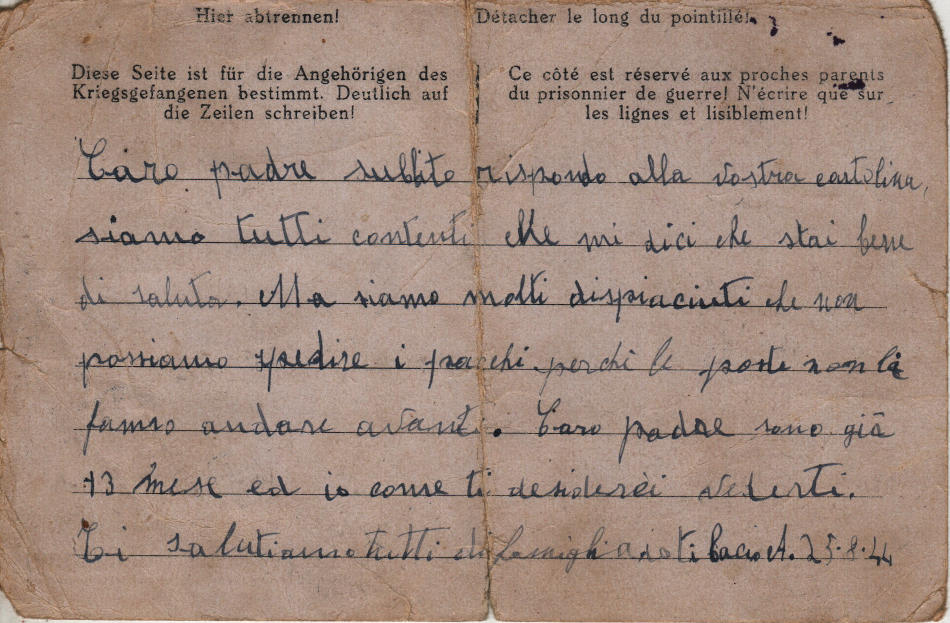 Hier abtrennen!
Détacher le long du pointillé!
Diese Seite ist für die Angehörigen des
Kriegsgefangenen bestimmt. Deutlich auf
die Zeilen schreiben!
Ce côté est réservé aux proches parents
du prisonnier de guerre! N'écrire que sur
les lignes et lisiblement!
Caro padre subbito rispondo alla vostra cartolina,
siamo tutti contenti che mi dici che stai bene
di saluta. Ma siamo molti dispiaciuti che non
possiamo spedire i pacchi perchi le poste non li
fanno andare avanti. Caro padre sono già
13 mese ed io come ti desiderei vederti.
Ti salutiamo tutti di famiglia ti bacio A. 25.8.44